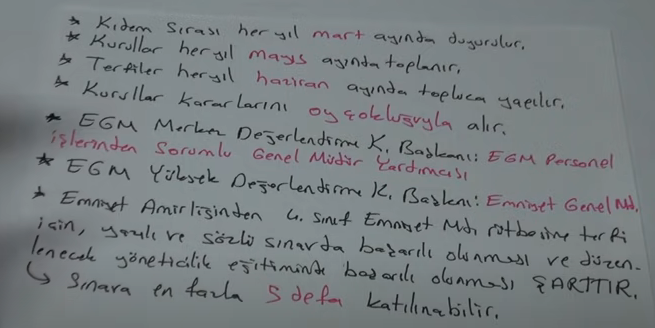 * Kıdem Sırası her yıl mart ayında duyurulur.
* Kurullar her yıl mayıs ayında toplanır.
* Terfiler her yıl haziran ayında topluca yapılır.
* Kurullar kararlarını oy çokluğuyla alır.
* EGM Merkez Değerlendirme K. Başkanı: EGM Personel
işlerinden Sorumlu Genel Müdür Yardımcısı
* EGM Yüksek Değerlendirme K. Başkanı: Emniyet Genel Md.
* Emniyet Amirliğinden 4. sınıf Emniyet Md. rütbesine terfi
için, yazılı ve sözlü sınavda başarılı olunması ve düzen-
lenecek yöneticilik eğitiminde başarılı olunması ŞARTTIR.
↳ Sınava en fazla 5 defa katılınabilir.